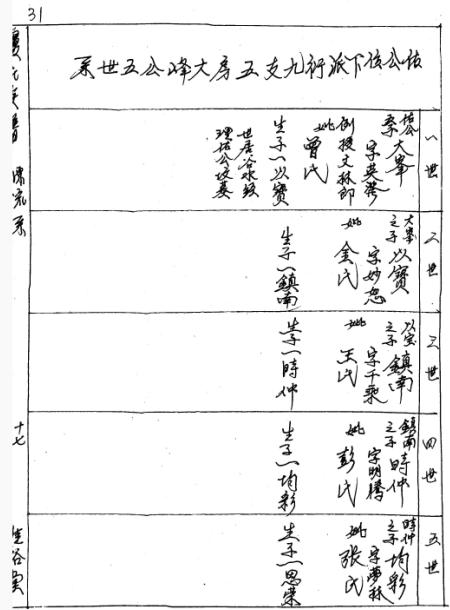 31
佑公位下派衍九支五房大峰公五世系
一世
佑公
系
大峯
字英彥
例授文林郎
妣曾氏
生子一以寳
世居谷水蛟
理佑公坟墓
二世
大峯
之子
以寳
字妙忽
妣金氏
生子一鎮南
三世
以宝
之子
鎮南
字千乘
妣王氏
生子一時仲
四世
鎮南
之子
時仲
字明騰
妣彭氏
生子一均彩
五世
時仲
之子
均彩
字夢林
妣張氏
生子一思榮
源流系
十七